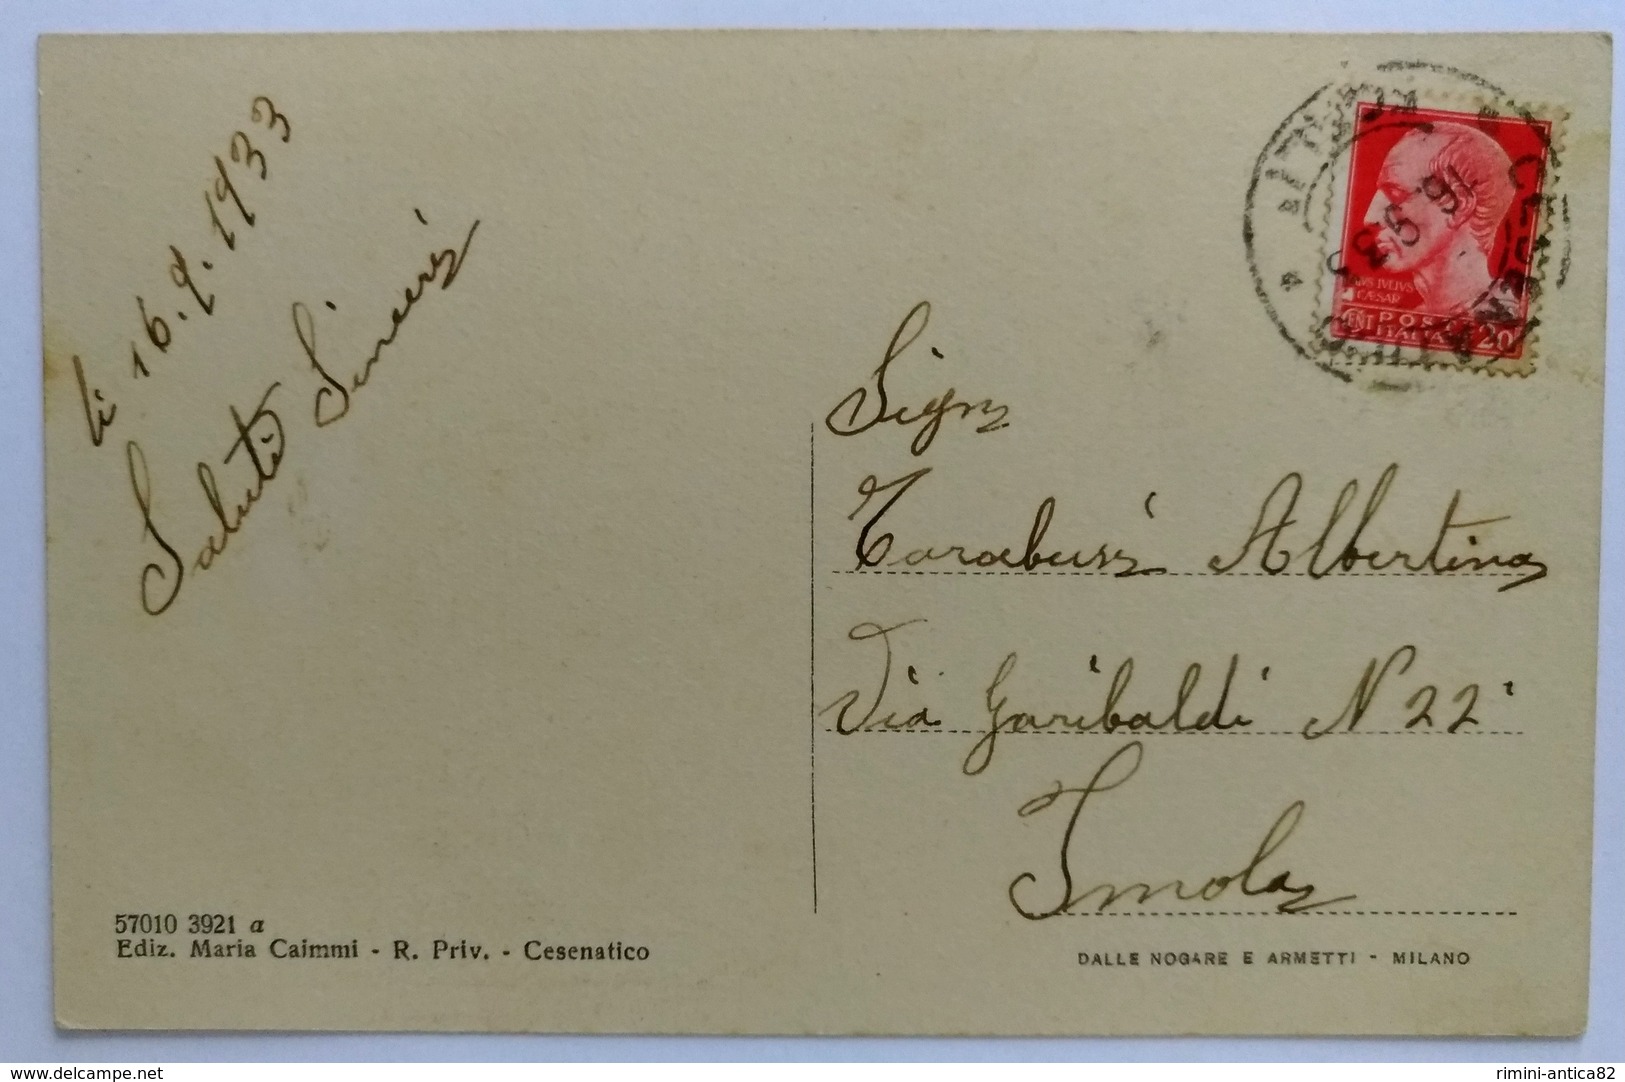 li 16.9.1933
Saluti Sinceri
Sign
Tarabusi Albertina
Via Garibaldi N 22
Imola
CESENATICO
FORLI
16 9 33
IVLIVS
CÆSAR
CENT POSTE
ITALIANE 20
57010 3921 a
Ediz. Maria Caimmi - R. Priv. - Cesenatico
DALLE NOGARE E ARMETTI - MILANO
www.delcampe.net
rimini-antica82